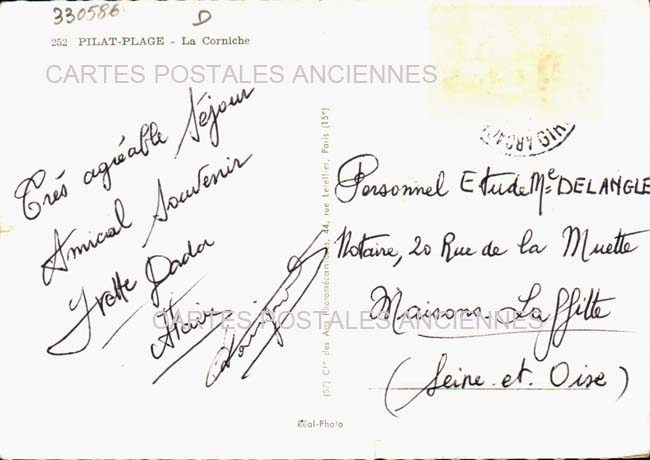 330586 D
252 PILAT-PLAGE - La Corniche
CARTES POSTALES ANCIENNES
Très agréable Séjour
Amical Souvenir
Yvette
(57) Cie des Arts Photomécaniques, 44, rue Letellier, Paris (15e)
Personnel Etude Me DELANGLE
Notaire, 20 Rue de la Muette
Maisons-Laffitte
(Seine et Oise)
CARTES POSTALES ANCIENNES
Réal-Photo